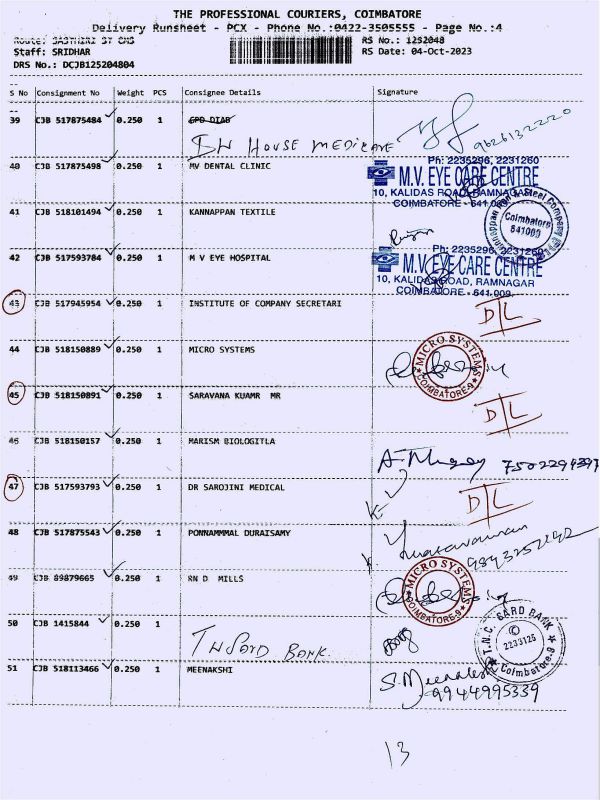 THE PROFESSIONAL COURIERS, COIMBATORE
Delivery Runsheet - PCX - Phone No.:0422-3505555 - Page No.:4
Staff: SRIDHAR
RS No.: 1252048
RS Date: 04-Oct-2023
DRS No.: DCJB125204804
S No Consignment No Weight PCS Consignee Details Signature
39 CJB 517875484 0.250 1 GPD DIAB
IN HOUSE MEDICARE 9626132220
40 CJB 517875498 0.250 1 MV DENTAL CLINIC
Ph: 2235296, 2231260
M.V. EYE CARE CENTRE
10, KALIDAS ROAD, RAMNAGAR
COIMBATORE - 641 009.
41 CJB 518101494 0.250 1 KANNAPPAN TEXTILE
Kannappan Iron & Steel Company
Coimbatore
641009
42 CJB 517593784 0.250 1 M V EYE HOSPITAL
Ph: 2235296, 2231260
M.V. EYE CARE CENTRE
10, KALIDAS ROAD, RAMNAGAR
COIMBATORE - 641 009.
43 CJB 517945954 0.250 1 INSTITUTE OF COMPANY SECRETARI D/L
44 CJB 518150889 0.250 1 MICRO SYSTEMS
MICRO SYSTEMS
COIMBATORE-9
45 CJB 518150891 0.250 1 SARAVANA KUAMR MR D/L
46 CJB 518150157 0.250 1 MARISM BIOLOGITLA
7502294397
47 CJB 517593793 0.250 1 DR SAROJINI MEDICAL D/L
48 CJB 517875543 0.250 1 PONNAMMMAL DURAISAMY
49 CJB 89879665 0.250 1 RN D MILLS
MICRO SYSTEMS
COIMBATORE-9
50 CJB 1415844 0.250 1
TN SARD BANK.
T.N.C. SARD BANK
2233125
Coimbatore-9
51 CJB 518113466 0.250 1 MEENAKSHI
S. Meenakshi
9944995339
13